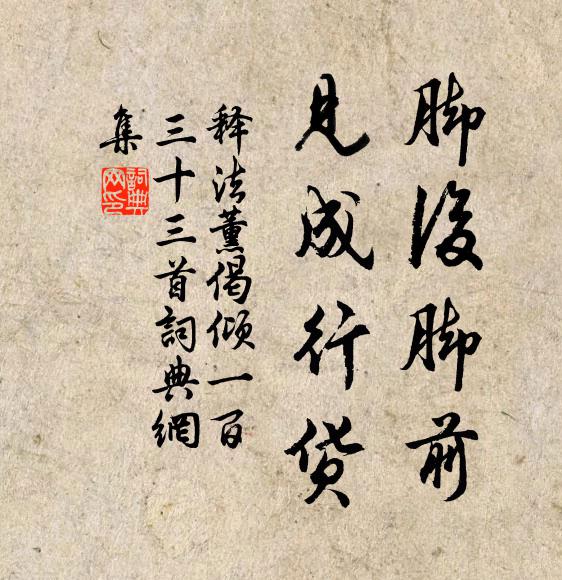 脚後脚前
見成行货
释法薰偈倾一百
三十三首詞典網
集
詞典
网印